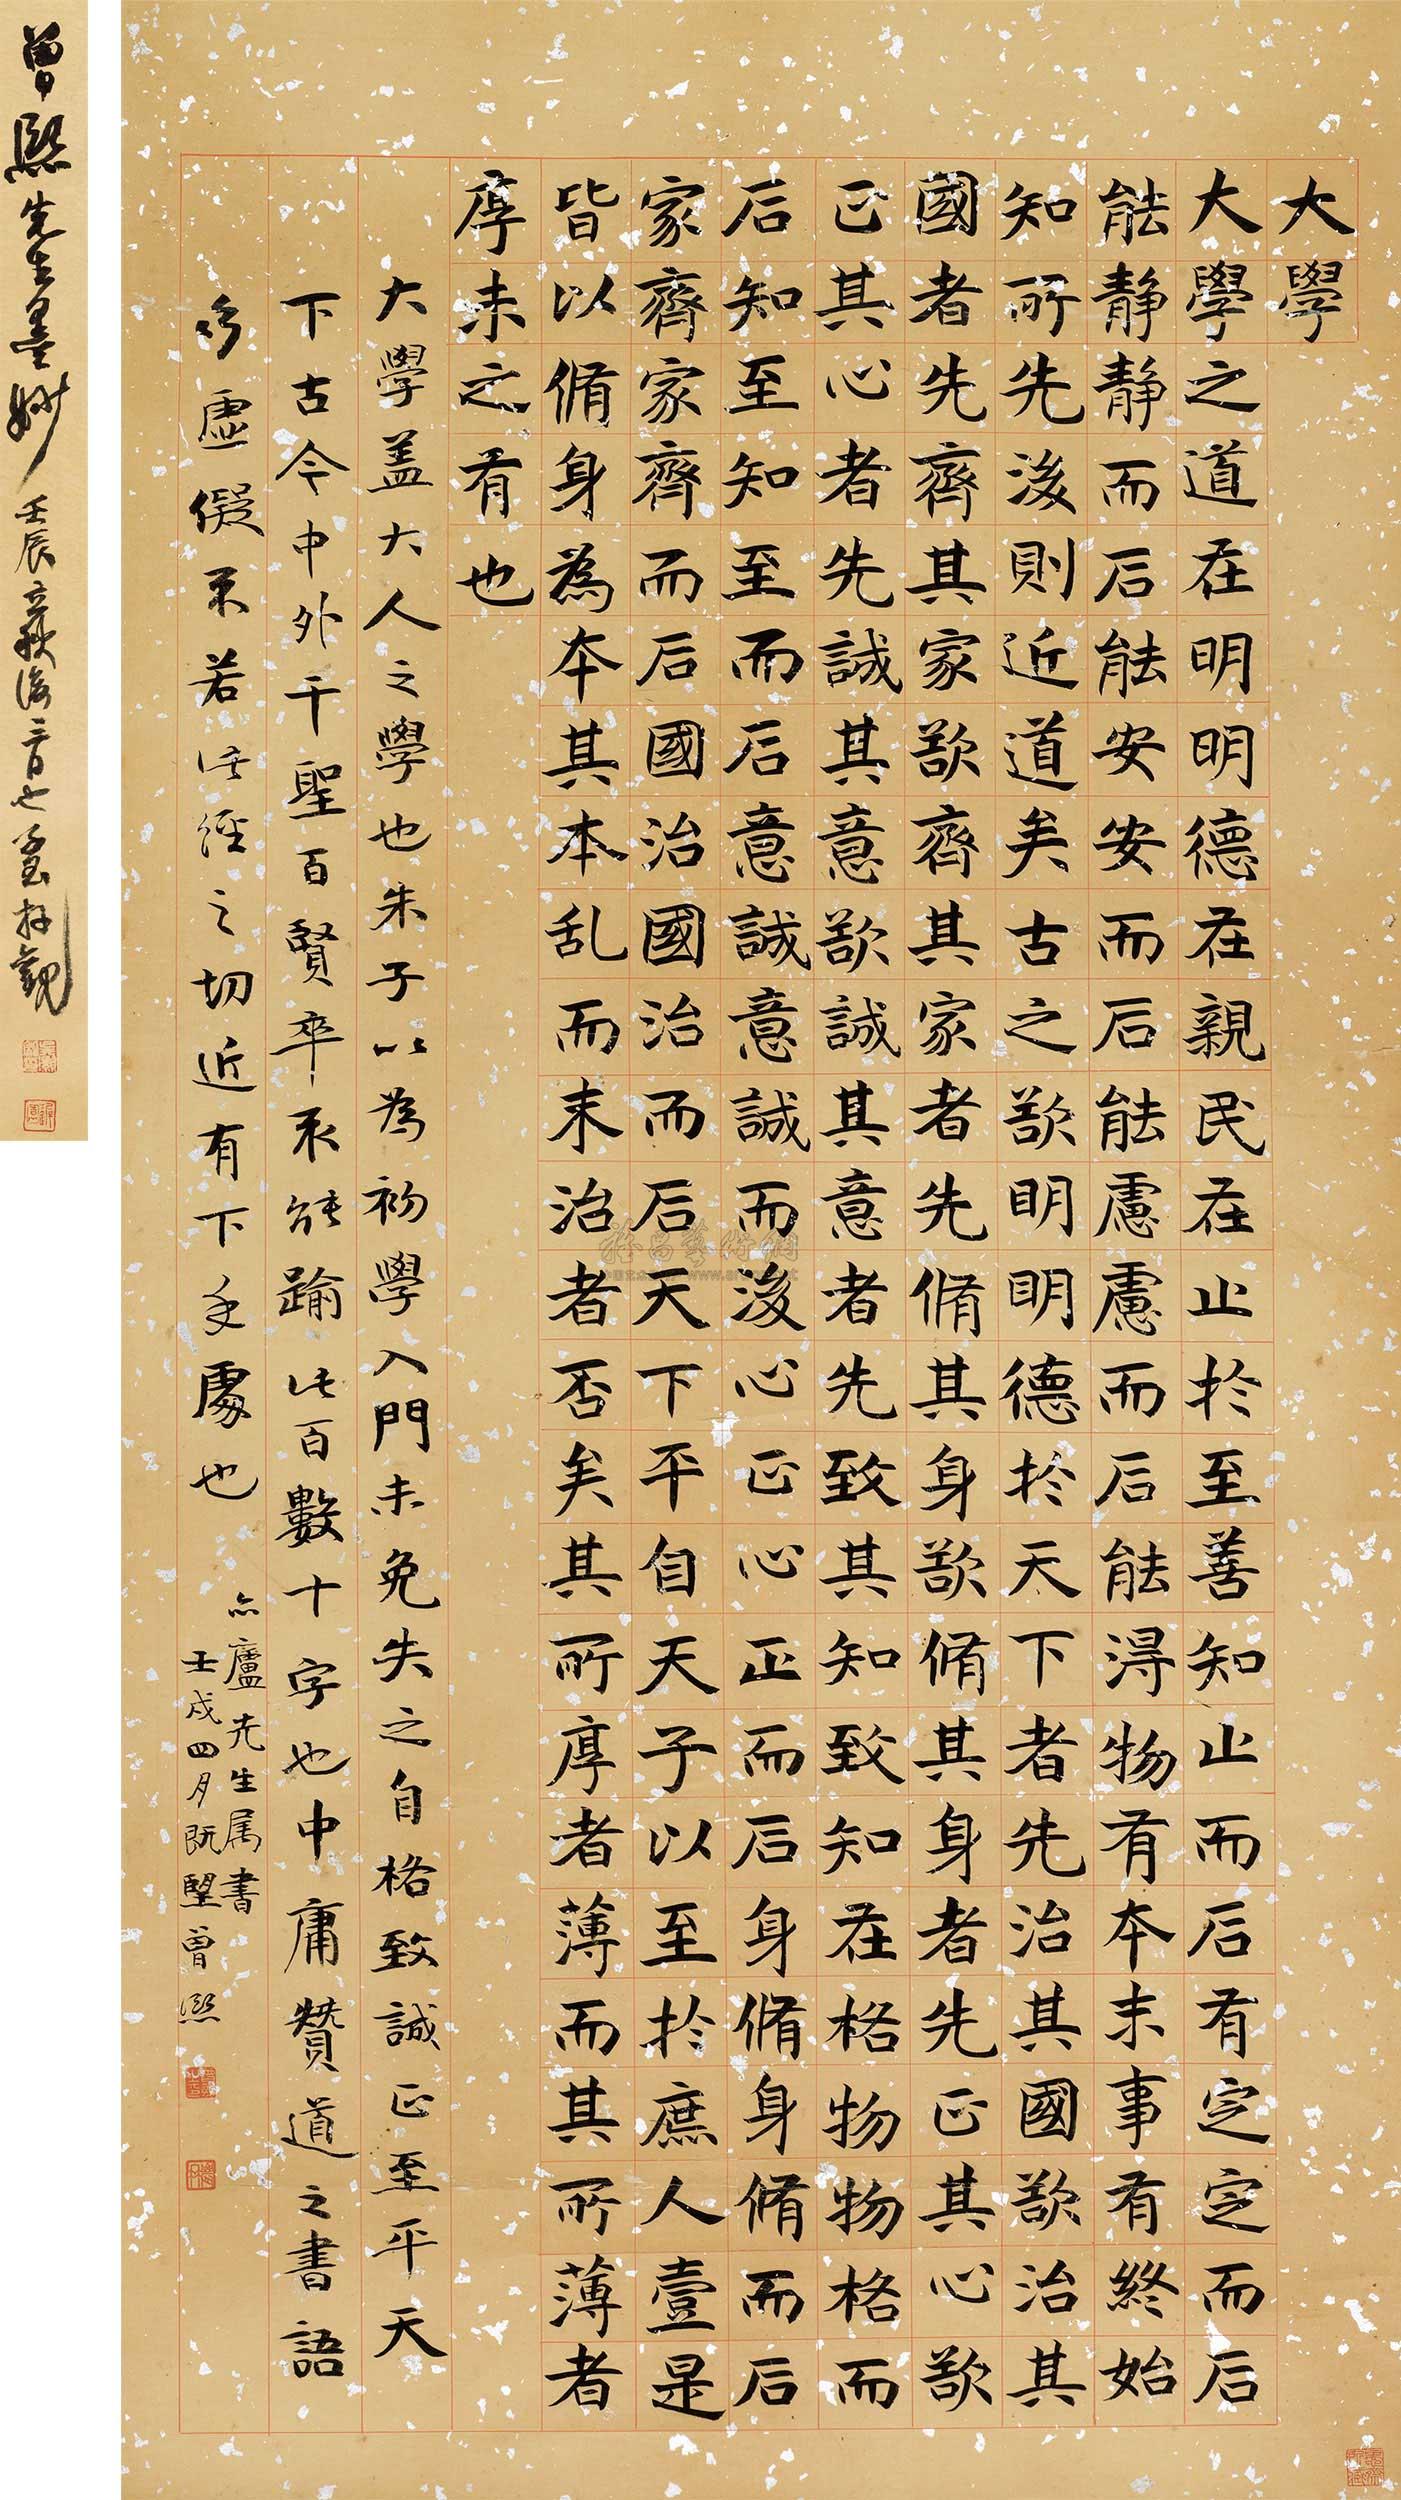 大學
大學之道在明明德在親民在止於至善知止而后有定定而后
能静静而后能安安而后能慮慮而后能淂物有本末事有終始
知所先後則近道矣古之欲明明德於天下者先治其國欲治其
國者先齊其家欲齊其家者先脩其身欲脩其身者先正其心欲
正其心者先誠其意欲誠其意者先致其知致知在格物物格而
后知至知至而后意誠意誠而後心正心正而后身脩身脩而后
家齊家齊而后國治國治而后天下平自天子以至於庶人壹是
皆以脩身為本其本乱而末治者否矣其所厚者薄而其所薄者
厚未之有也
大學盖大人之學也朱子以為初學入門未免失之自格致誠正至平天
下古今中外千聖百賢卒不能踰此百數十字也中庸贊道之書語
多虛儗不若此經之切近有下手處也
亦廬先生属書
壬戌四月既望曾熙
曾熙先生墨妙
壬辰立秋後二百七